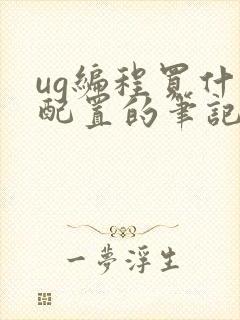 ug編程買什
配置的筆記
一夢浮生